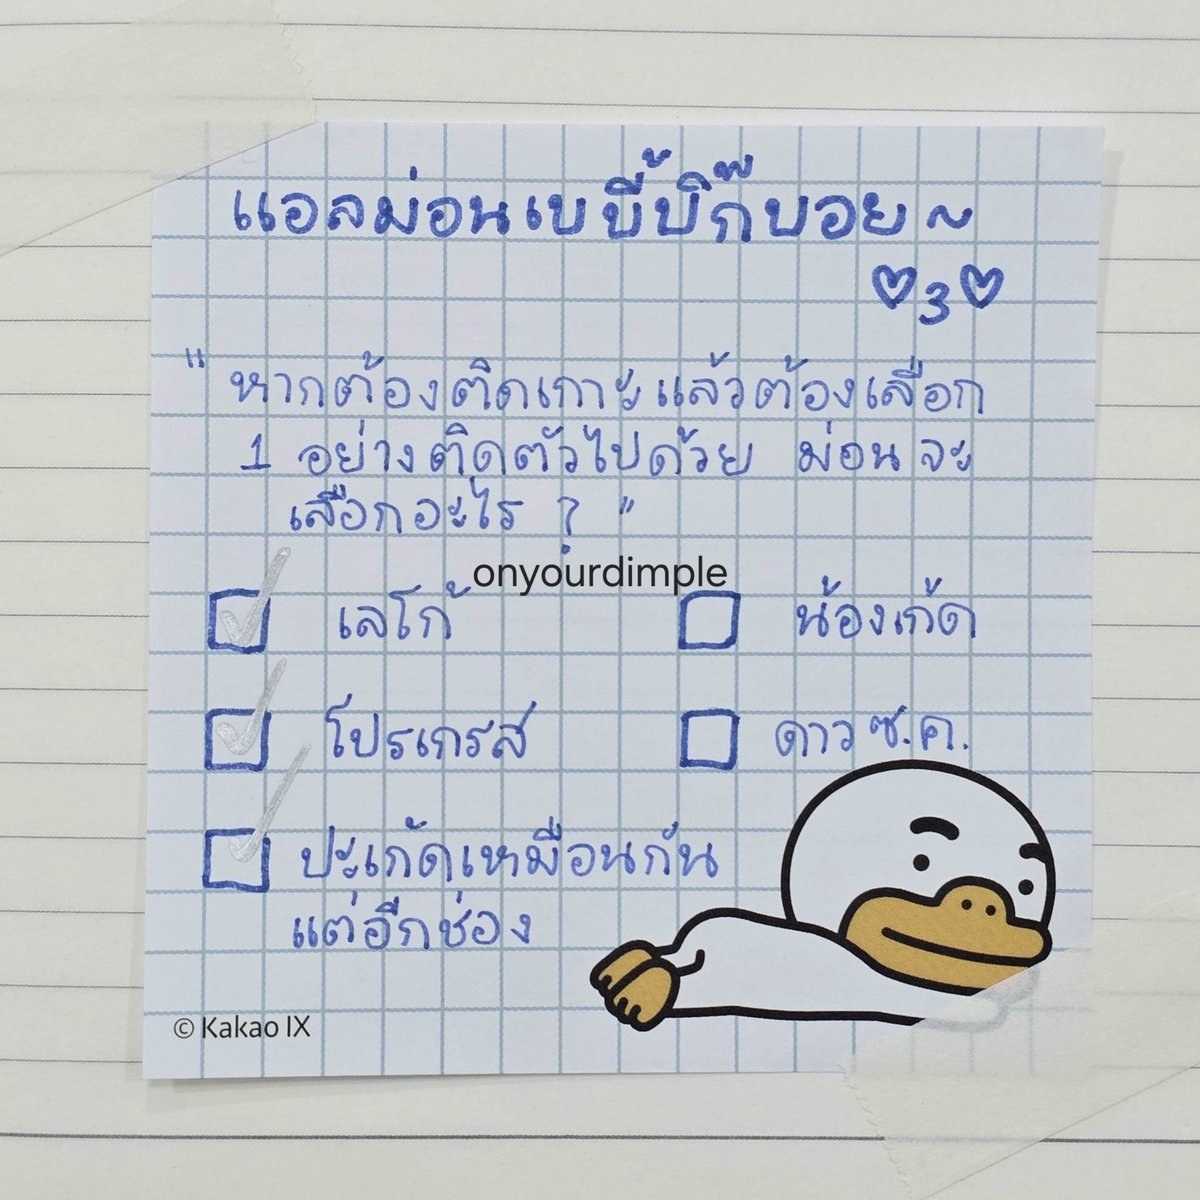 แอลม่อนเบบี้บิ๊กบอย~
♡3♡
"หากต้องติดเกาะแล้วต้องเลือก
1 อย่างติดตัวไปด้วย ม่อนจะ
เลือกอะไร ? "
onyourdimple
เลโก้
น้องเก้ด
โปรเกรส
ดาว ซ.ค.
ปะเก้ดเหมือนกัน
แต่อีกช่อง
© Kakao IX